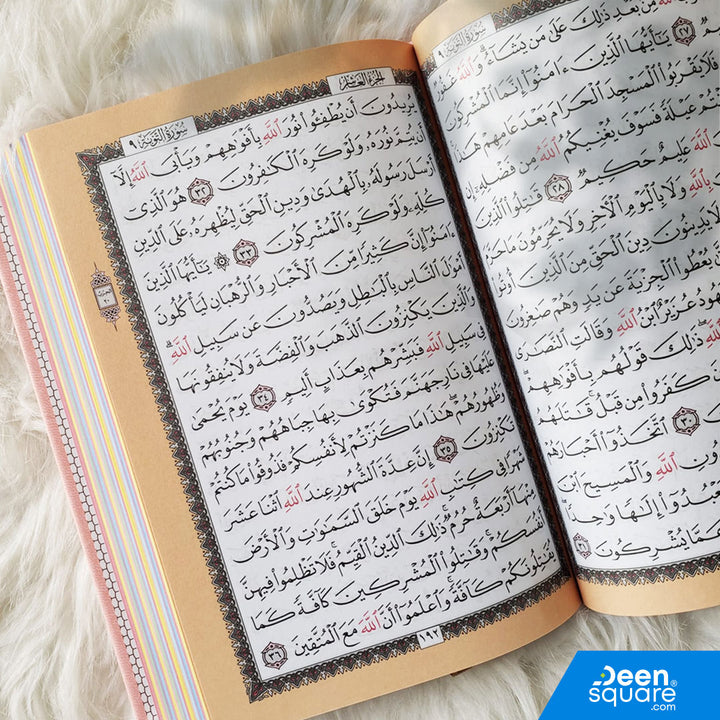 سُورَةُ التَّوْبَةِ ٩
مِنۢ بَعْدِ ذَٰلِكَ عَلَىٰ مَن يَشَآءُ ۗ وَٱللَّهُ
٢٧ يَٰٓأَيُّهَا ٱلَّذِينَ ءَامَنُوٓا۟ إِنَّمَا ٱلْمُشْرِكُونَ
فَلَا يَقْرَبُوا۟ ٱلْمَسْجِدَ ٱلْحَرَامَ بَعْدَ عَامِهِمْ هَٰذَا
عَيْلَةً فَسَوْفَ يُغْنِيكُمُ ٱللَّهُ مِن فَضْلِهِۦٓ إِن
ٱللَّهَ عَلِيمٌ حَكِيمٌ ٢٨ قَٰتِلُوا۟ ٱلَّذِينَ
بِٱللَّهِ وَلَا بِٱلْيَوْمِ ٱلْأَخِرِ وَلَا يُحَرِّمُونَ مَا حَرَّمَ
يَدِينُونَ دِينَ ٱلْحَقِّ مِنَ ٱلَّذِينَ أُوتُوا۟
يُعْطُوا۟ ٱلْجِزْيَةَ عَن يَدٍ وَهُمْ صَٰغِرُونَ
عُزَيْرٌ ٱبْنُ ٱللَّهِ وَقَالَتِ ٱلنَّصَٰرَى
ٱللَّهِ ۖ ذَٰلِكَ قَوْلُهُم بِأَفْوَٰهِهِمْ ۖ
كَفَرُوا۟ مِن قَبْلُ ۚ قَٰتَلَهُمُ
٣٠ ٱتَّخَذُوٓا۟ أَحْبَارَهُمْ
ٱللَّهِ وَٱلْمَسِيحَ ٱبْنَ
إِلَٰهًا وَٰحِدًا ۖ
عَمَّا يُشْرِكُونَ ٣١
الجُزْءُ العَاشِرُ
سُورَةُ التَّوْبَةِ ٩
يُرِيدُونَ أَن يُطْفِـُٔوا۟ نُورَ ٱللَّهِ بِأَفْوَٰهِهِمْ وَيَأْبَى ٱللَّهُ إِلَّآ
أَن يُتِمَّ نُورَهُۥ وَلَوْ كَرِهَ ٱلْكَٰفِرُونَ ٣٢ هُوَ ٱلَّذِىٓ
أَرْسَلَ رَسُولَهُۥ بِٱلْهُدَىٰ وَدِينِ ٱلْحَقِّ لِيُظْهِرَهُۥ عَلَى ٱلدِّينِ
كُلِّهِۦ وَلَوْ كَرِهَ ٱلْمُشْرِكُونَ ٣٣ ۞ يَٰٓأَيُّهَا ٱلَّذِينَ
ءَامَنُوٓا۟ إِنَّ كَثِيرًا مِّنَ ٱلْأَحْبَارِ وَٱلرُّهْبَانِ لَيَأْكُلُونَ
أَمْوَٰلَ ٱلنَّاسِ بِٱلْبَٰطِلِ وَيَصُدُّونَ عَن سَبِيلِ ٱللَّهِ ۗ
وَٱلَّذِينَ يَكْنِزُونَ ٱلذَّهَبَ وَٱلْفِضَّةَ وَلَا يُنفِقُونَهَا
فِى سَبِيلِ ٱللَّهِ فَبَشِّرْهُم بِعَذَابٍ أَلِيمٍ ٣٤ يَوْمَ يُحْمَىٰ
عَلَيْهَا فِى نَارِ جَهَنَّمَ فَتُكْوَىٰ بِهَا جِبَاهُهُمْ وَجُنُوبُهُمْ
وَظُهُورُهُمْ ۖ هَٰذَا مَا كَنَزْتُمْ لِأَنفُسِكُمْ فَذُوقُوا۟ مَا كُنتُمْ
تَكْنِزُونَ ٣٥ إِنَّ عِدَّةَ ٱلشُّهُورِ عِندَ ٱللَّهِ ٱثْنَا عَشَرَ
شَهْرًا فِى كِتَٰبِ ٱللَّهِ يَوْمَ خَلَقَ ٱلسَّمَٰوَٰتِ وَٱلْأَرْضَ
مِنْهَآ أَرْبَعَةٌ حُرُمٌ ۚ ذَٰلِكَ ٱلدِّينُ ٱلْقَيِّمُ ۚ فَلَا تَظْلِمُوا۟ فِيهِنَّ
أَنفُسَكُمْ ۚ وَقَٰتِلُوا۟ ٱلْمُشْرِكِينَ كَآفَّةً كَمَا
يُقَٰتِلُونَكُمْ كَآفَّةً ۚ وَٱعْلَمُوٓا۟ أَنَّ ٱللَّهَ مَعَ ٱلْمُتَّقِينَ ٣٦
١٩٢
Deen
square®
.com